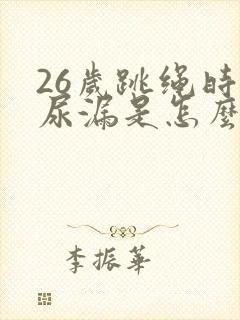 26歲跳绳時
尿漏是怎麼
李振華